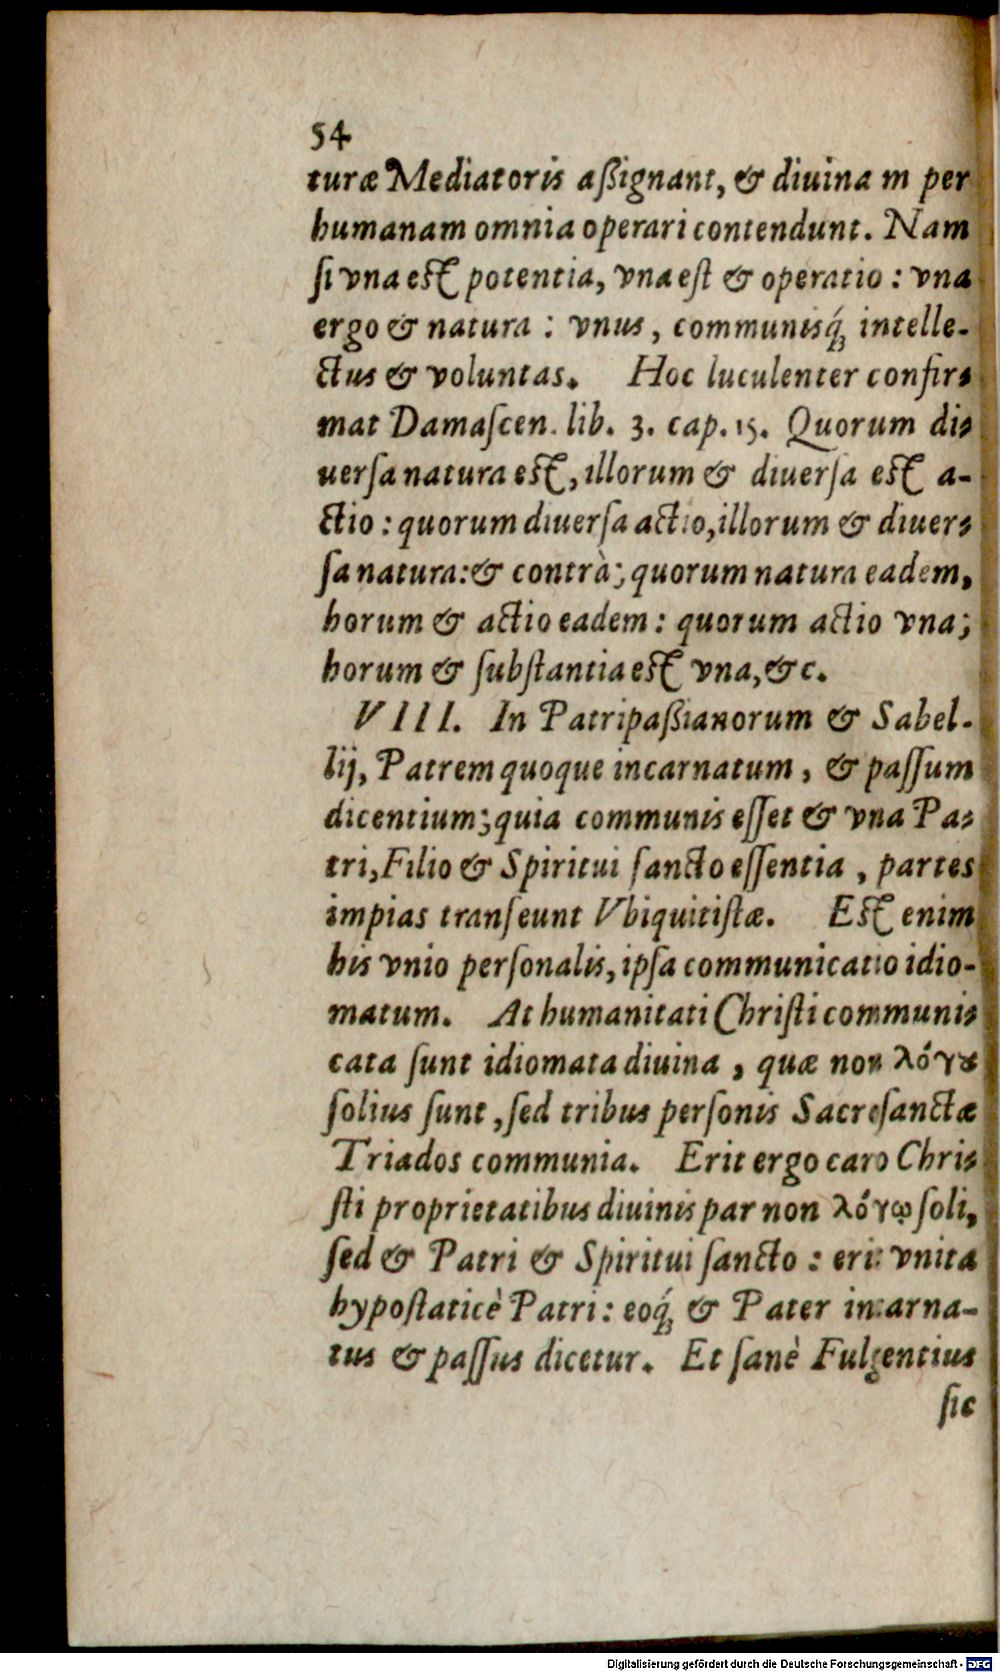 54
turæ Mediatoris aßignant, & diuina m per
humanam omnia operari contendunt. Nam
ſi vna eſt potentia, vna eſt & operatio : vna
ergo & natura : vnus, communisq́; intelle-
ctus & voluntas. Hoc luculenter confir-
mat Damaſcen. lib. 3. cap. 15. Quorum di-
uerſa natura eſt, illorum & diuerſa eſt a-
ctio : quorum diuerſa actio, illorum & diuer-
ſa natura: & contrà; quorum natura eadem,
horum & actio eadem : quorum actio vna;
horum & ſubſtantia eſt vna, &c.
VIII. In Patripaßianorum & Sabel-
lij, Patrem quoque incarnatum, & paſſum
dicentium; quia communis eſſet & vna Pa-
tri, Filio & Spiritui ſancto eſſentia, partes
impias tranſeunt Vbiquitiſtæ. Eſt enim
his vnio perſonalis, ipſa communicatio idio-
matum. At humanitati Chriſti communi-
cata ſunt idiomata diuina, quæ non λόγȣ
ſolius ſunt, ſed tribus perſonis Sacroſanctæ
Triados communia. Erit ergo caro Chri-
ſti proprietatibus diuinis par non λόγῳ ſoli,
ſed & Patri & Spiritui ſancto : erit vnita
hypoſtaticè Patri: eoq́; & Pater incarna-
tus & paſſus dicetur. Et ſanè Fulgentius
ſic
Digitalisierung gefördert durch die Deutsche Forschungsgemeinschaft - DFG